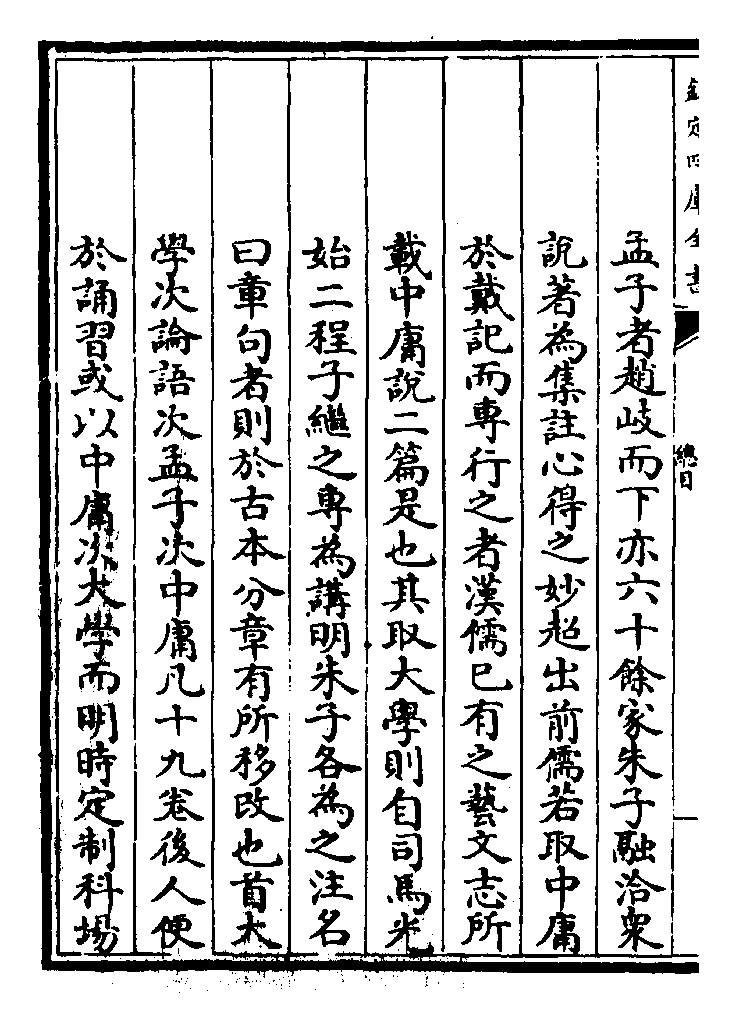 欽定四庫全書
總目
孟子者趙岐而下亦六十餘家朱子融洽衆
說著為集註心得之妙超出前儒若取中庸
於戴記而專行之者漢儒已有之藝文志所
載中庸說二篇是也其取大學則自司馬光
始二程子繼之專為講明朱子各為之注名
曰章句者則於古本分章有所移改也首大
學次論語次孟子次中庸凡十九卷後人便
於誦習或以中庸次大學而明時定制科場